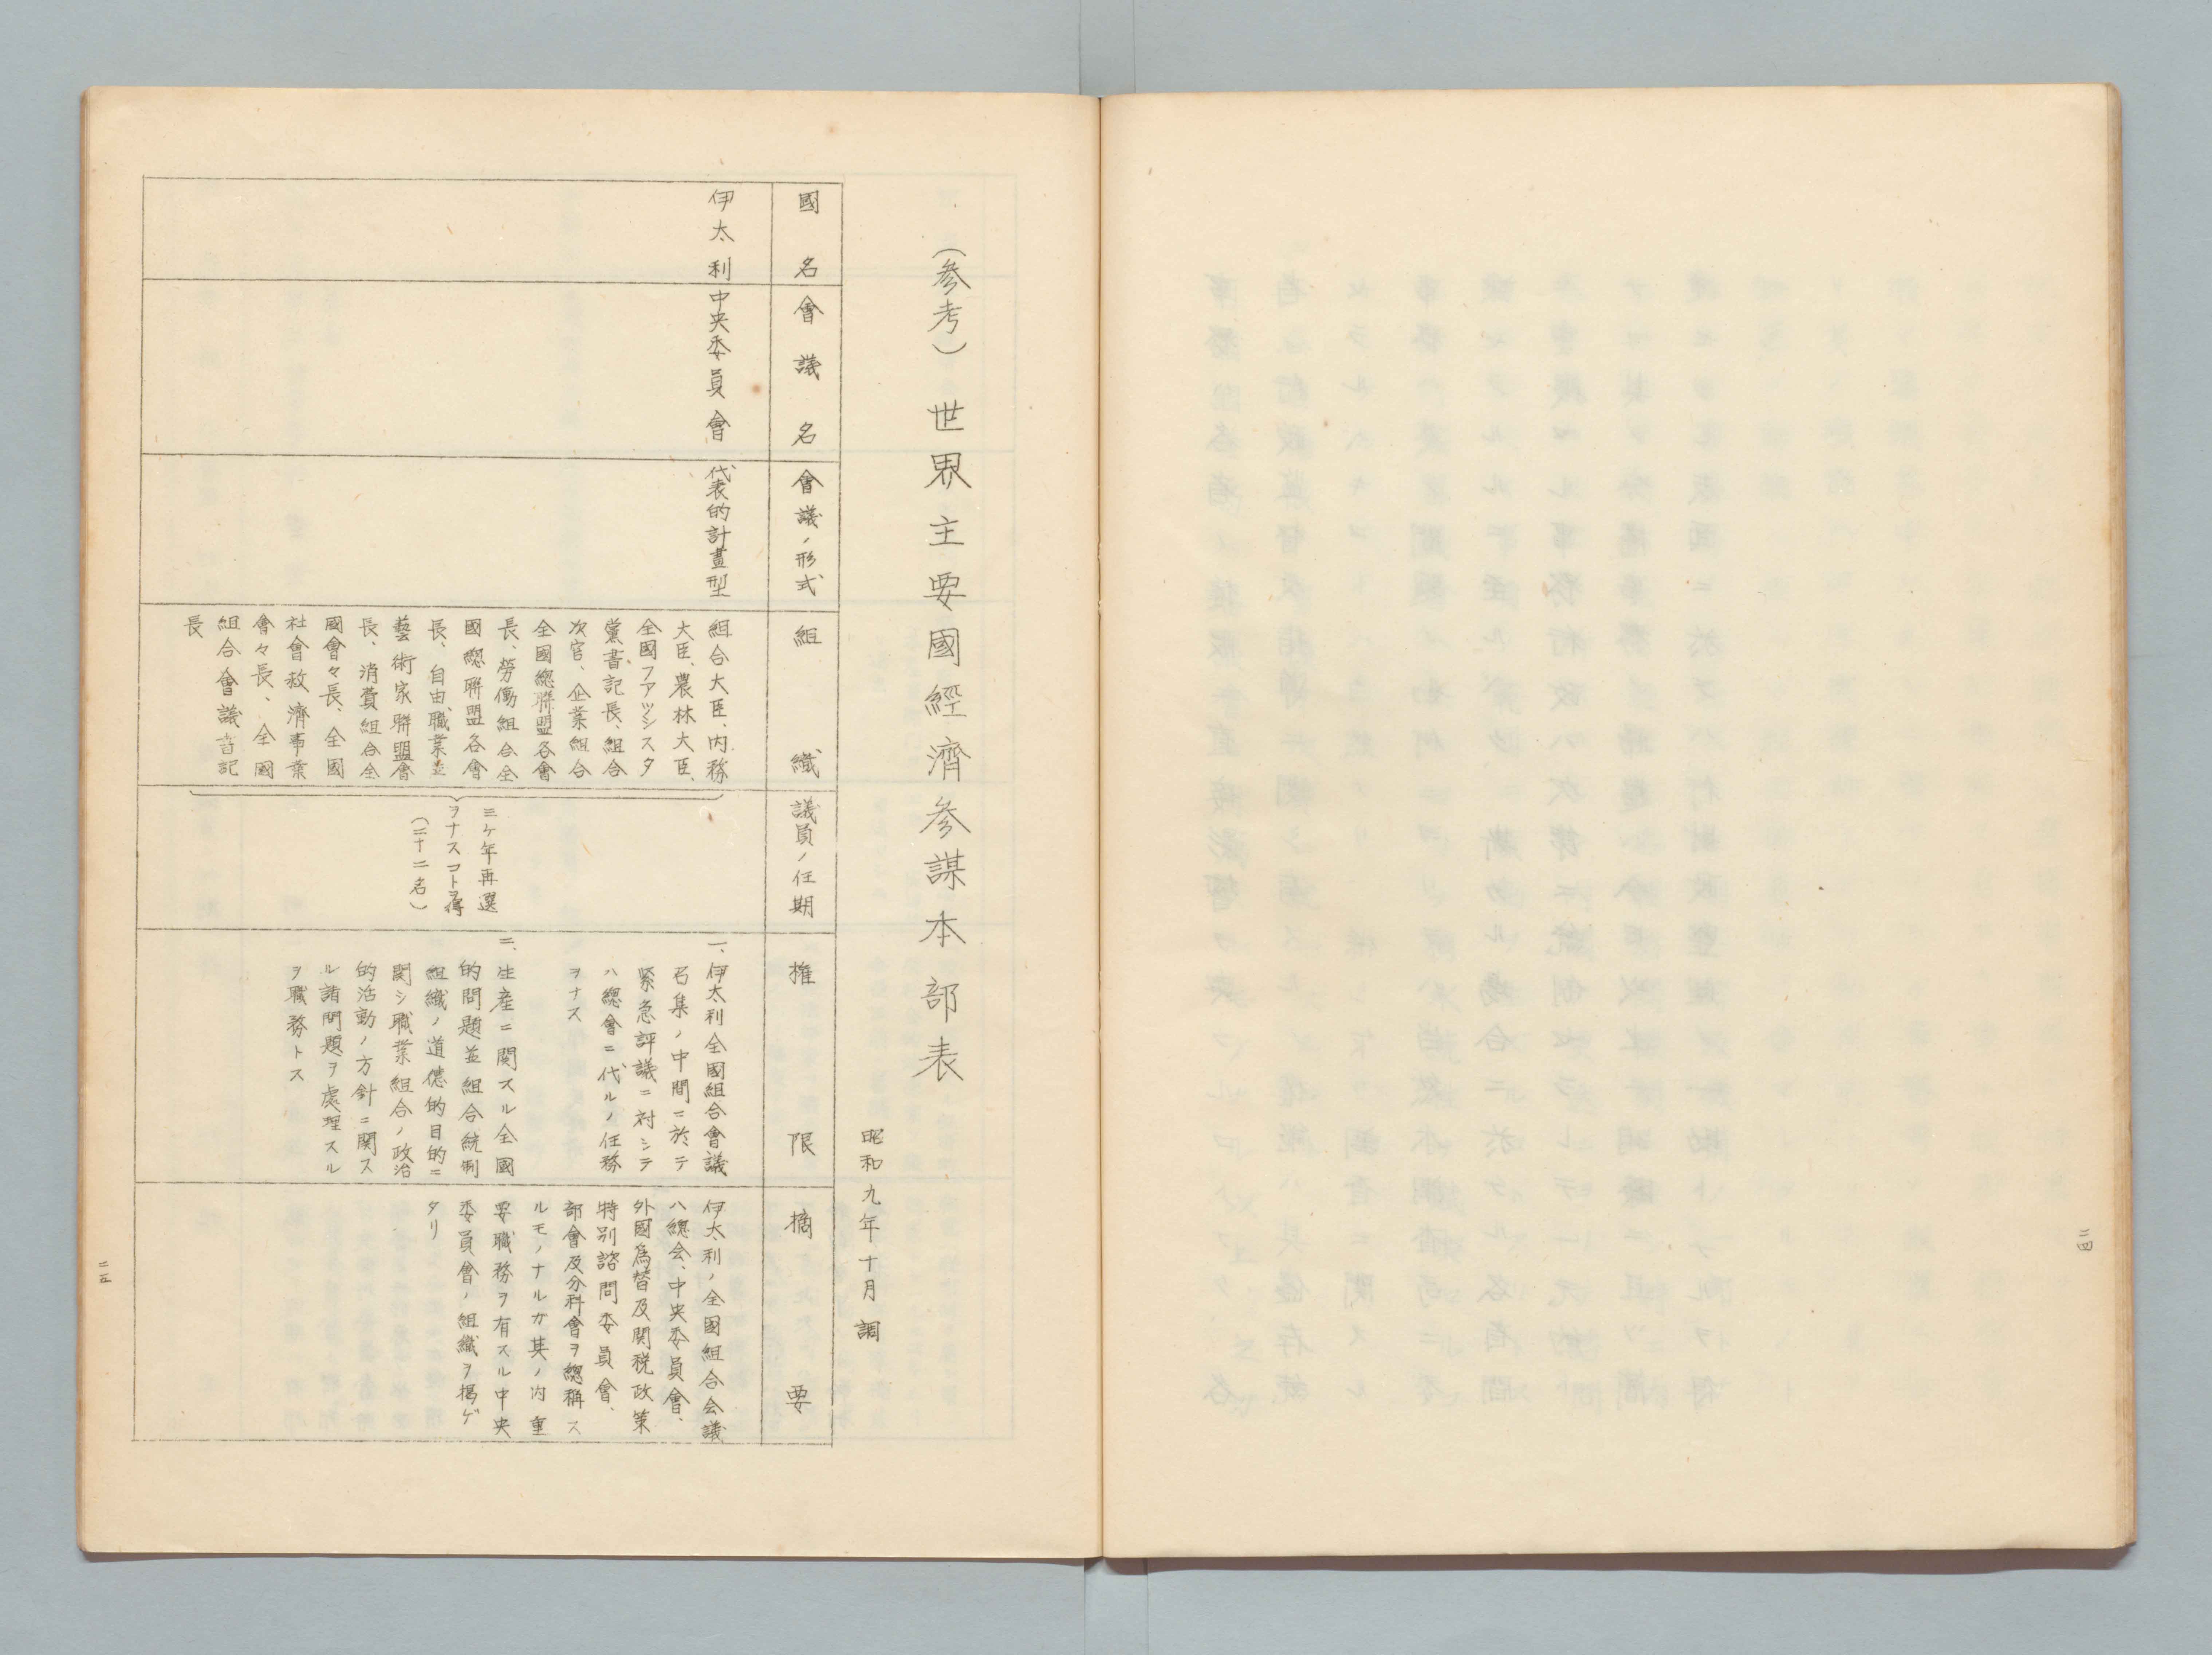 二四
(参考)世界主要國經濟参謀本部表
昭和九年十月調
國名
會議名
會議ノ形式
組織
議員ノ任期
権限
摘要
伊太利
中央委員會
代表的計畫型
組合大臣、内務
大臣、農林大臣、
全國フアツシスタ
黨書記長、組合
次官、企業組合
全國總聯盟各會
長、勞働組合全
國總聯盟各會
長、自由職業並
藝術家聯盟會
長、消費組合全
國會々長、全國
社會救濟事業
會々長、全國
組合會議書記
長
三ケ年再選
ヲナスコトヲ得
(二十二名)
一、伊太利全國組合會議
召集ノ中間ニ於テ
緊急評議ニ対シテ
ハ總會ニ代ルノ任務
ヲナス
二、生産ニ関スル全國
的問題並組合統制
組織ノ道徳的目的ニ
関シ職業組合ノ政治
的活動ノ方針ニ関ス
ル諸問題ヲ處理スル
ヲ職務トス
伊太利ノ全國組合会議
ハ總会、中央委員會、
外國為替及関税政策
特別諮問委員會、
部會及分科會ヲ總稱ス
ルモノナルガ其ノ内重
要職務ヲ有スル中央
委員會ノ組織ヲ掲ゲ
タリ
二五